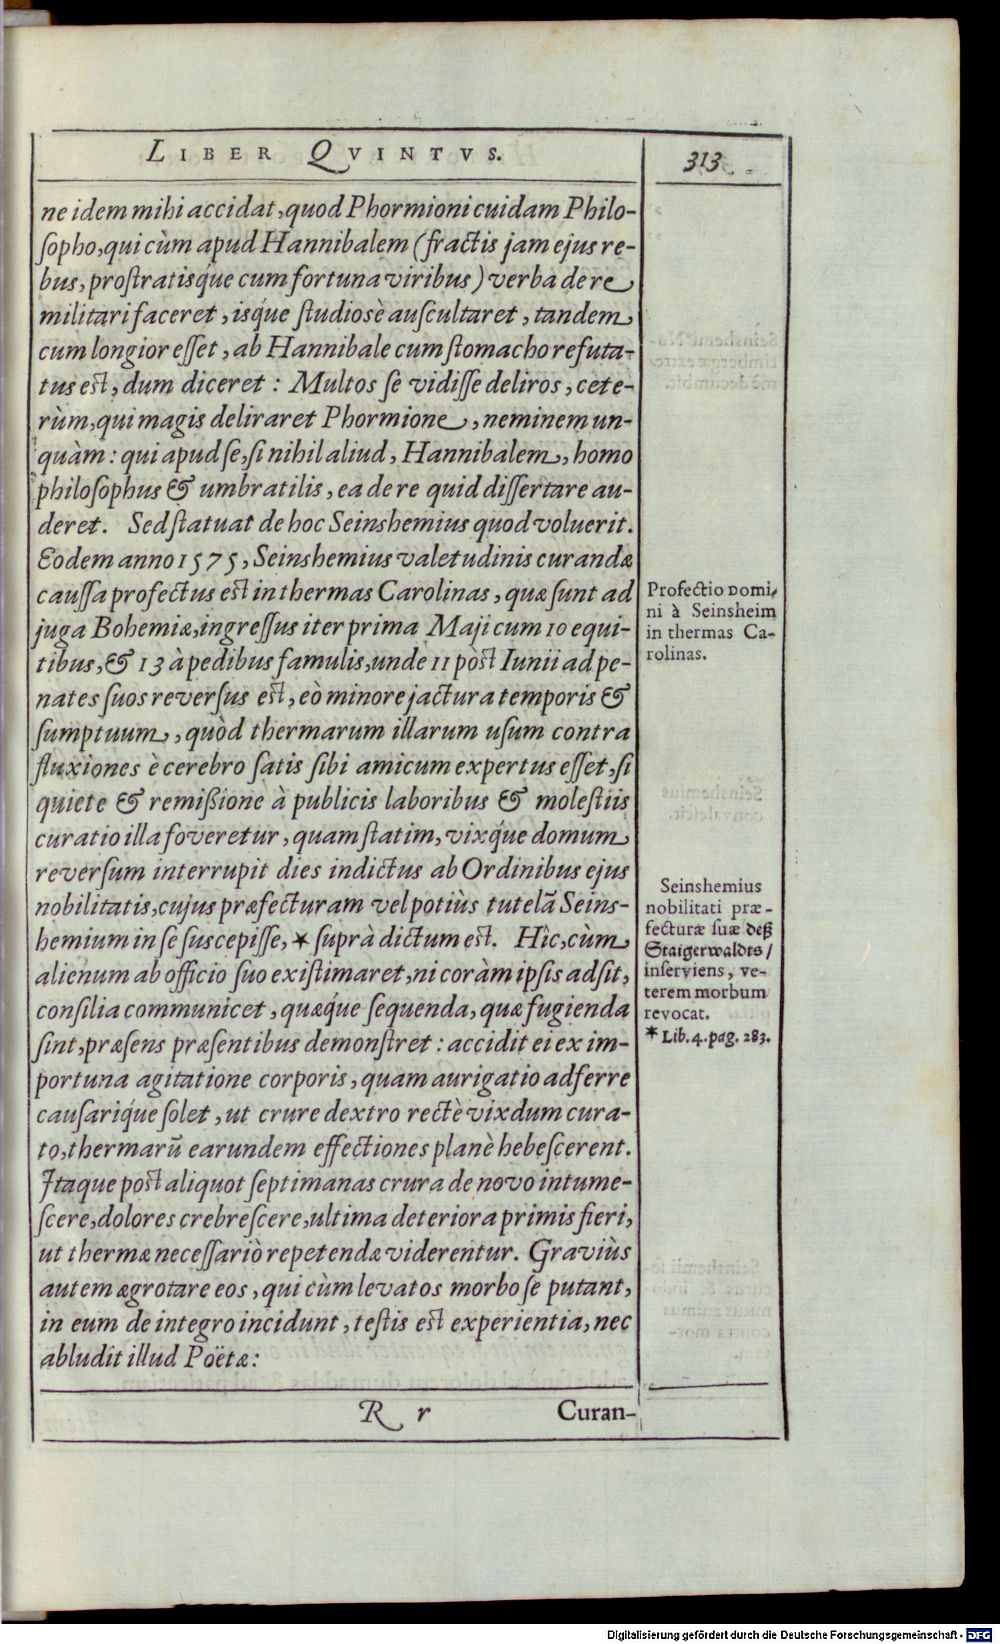 LIBER QVINTVS.
313
ne idem mihi accidat, quod Phormioni cuidam Philo-
sopho, qui cùm apud Hannibalem (fractis jam ejus re-
bus, prostratisque cum fortuna viribus) verba de re
militari faceret, isque studiosè auscultaret, tandem
cum longior esset, ab Hannibale cum stomacho refuta-
tus est, dum diceret: Multos se vidisse deliros, cete-
rùm, qui magis deliraret Phormione, neminem un-
quàm: qui apud se, si nihil aliud, Hannibalem, homo
philosophus & umbratilis, ea de re quid dissertare au-
deret. Sed statuat de hoc Seinshemius quod voluerit.
Eodem anno 1575, Seinshemius valetudinis curandæ
caussa profectus est in thermas Carolinas, quæ sunt ad
juga Bohemiæ, ingressus iter prima Maji cum 10 equi-
tibus, & 13 à pedibus famulis, unde 11 pòst Iunii ad pe-
nates suos reversus est, eò minore jactura temporis &
sumptuum, quòd thermarum illarum usum contra
fluxiones è cerebro satis sibi amicum expertus esset, si
quiete & remißione à publicis laboribus & molestiis
curatio illa foveretur, quam statim, vixque domum
reversum interrupit dies indictus ab Ordinibus ejus
nobilitatis, cujus præfecturam vel potiùs tutelã Seins-
hemium in se suscepisse, * suprà dictum est. Hîc, cùm
alienum ab officio suo existimaret, ni coràm ipsis adsit,
consilia communicet, quæque sequenda, quæ fugienda
sint, præsens præsentibus demonstret: accidit ei ex im-
portuna agitatione corporis, quam aurigatio adferre
causarique solet, ut crure dextro rectè vixdum cura-
to, thermarũ earundem effectiones planè hebescerent.
Itaque post aliquot septimanas crura de novo intume-
scere, dolores crebrescere, ultima deteriora primis fieri,
ut thermæ necessariò repetendæ viderentur. Graviùs
autem ægrotare eos, qui cùm levatos morbo se putant,
in eum de integro incidunt, testis est experientia, nec
abludit illud Poëtæ:
R r
Curan-
Profectio Domi-
ni à Seinsheim
in thermas Ca-
rolinas.
Seinshemius
nobilitati præ-
fecturæ suæ deß
Staigerwaldts/
inserviens, ve-
terem morbum
revocat.
* Lib. 4. pag. 283.
Digitalisierung gefördert durch die Deutsche Forschungsgemeinschaft - DFG